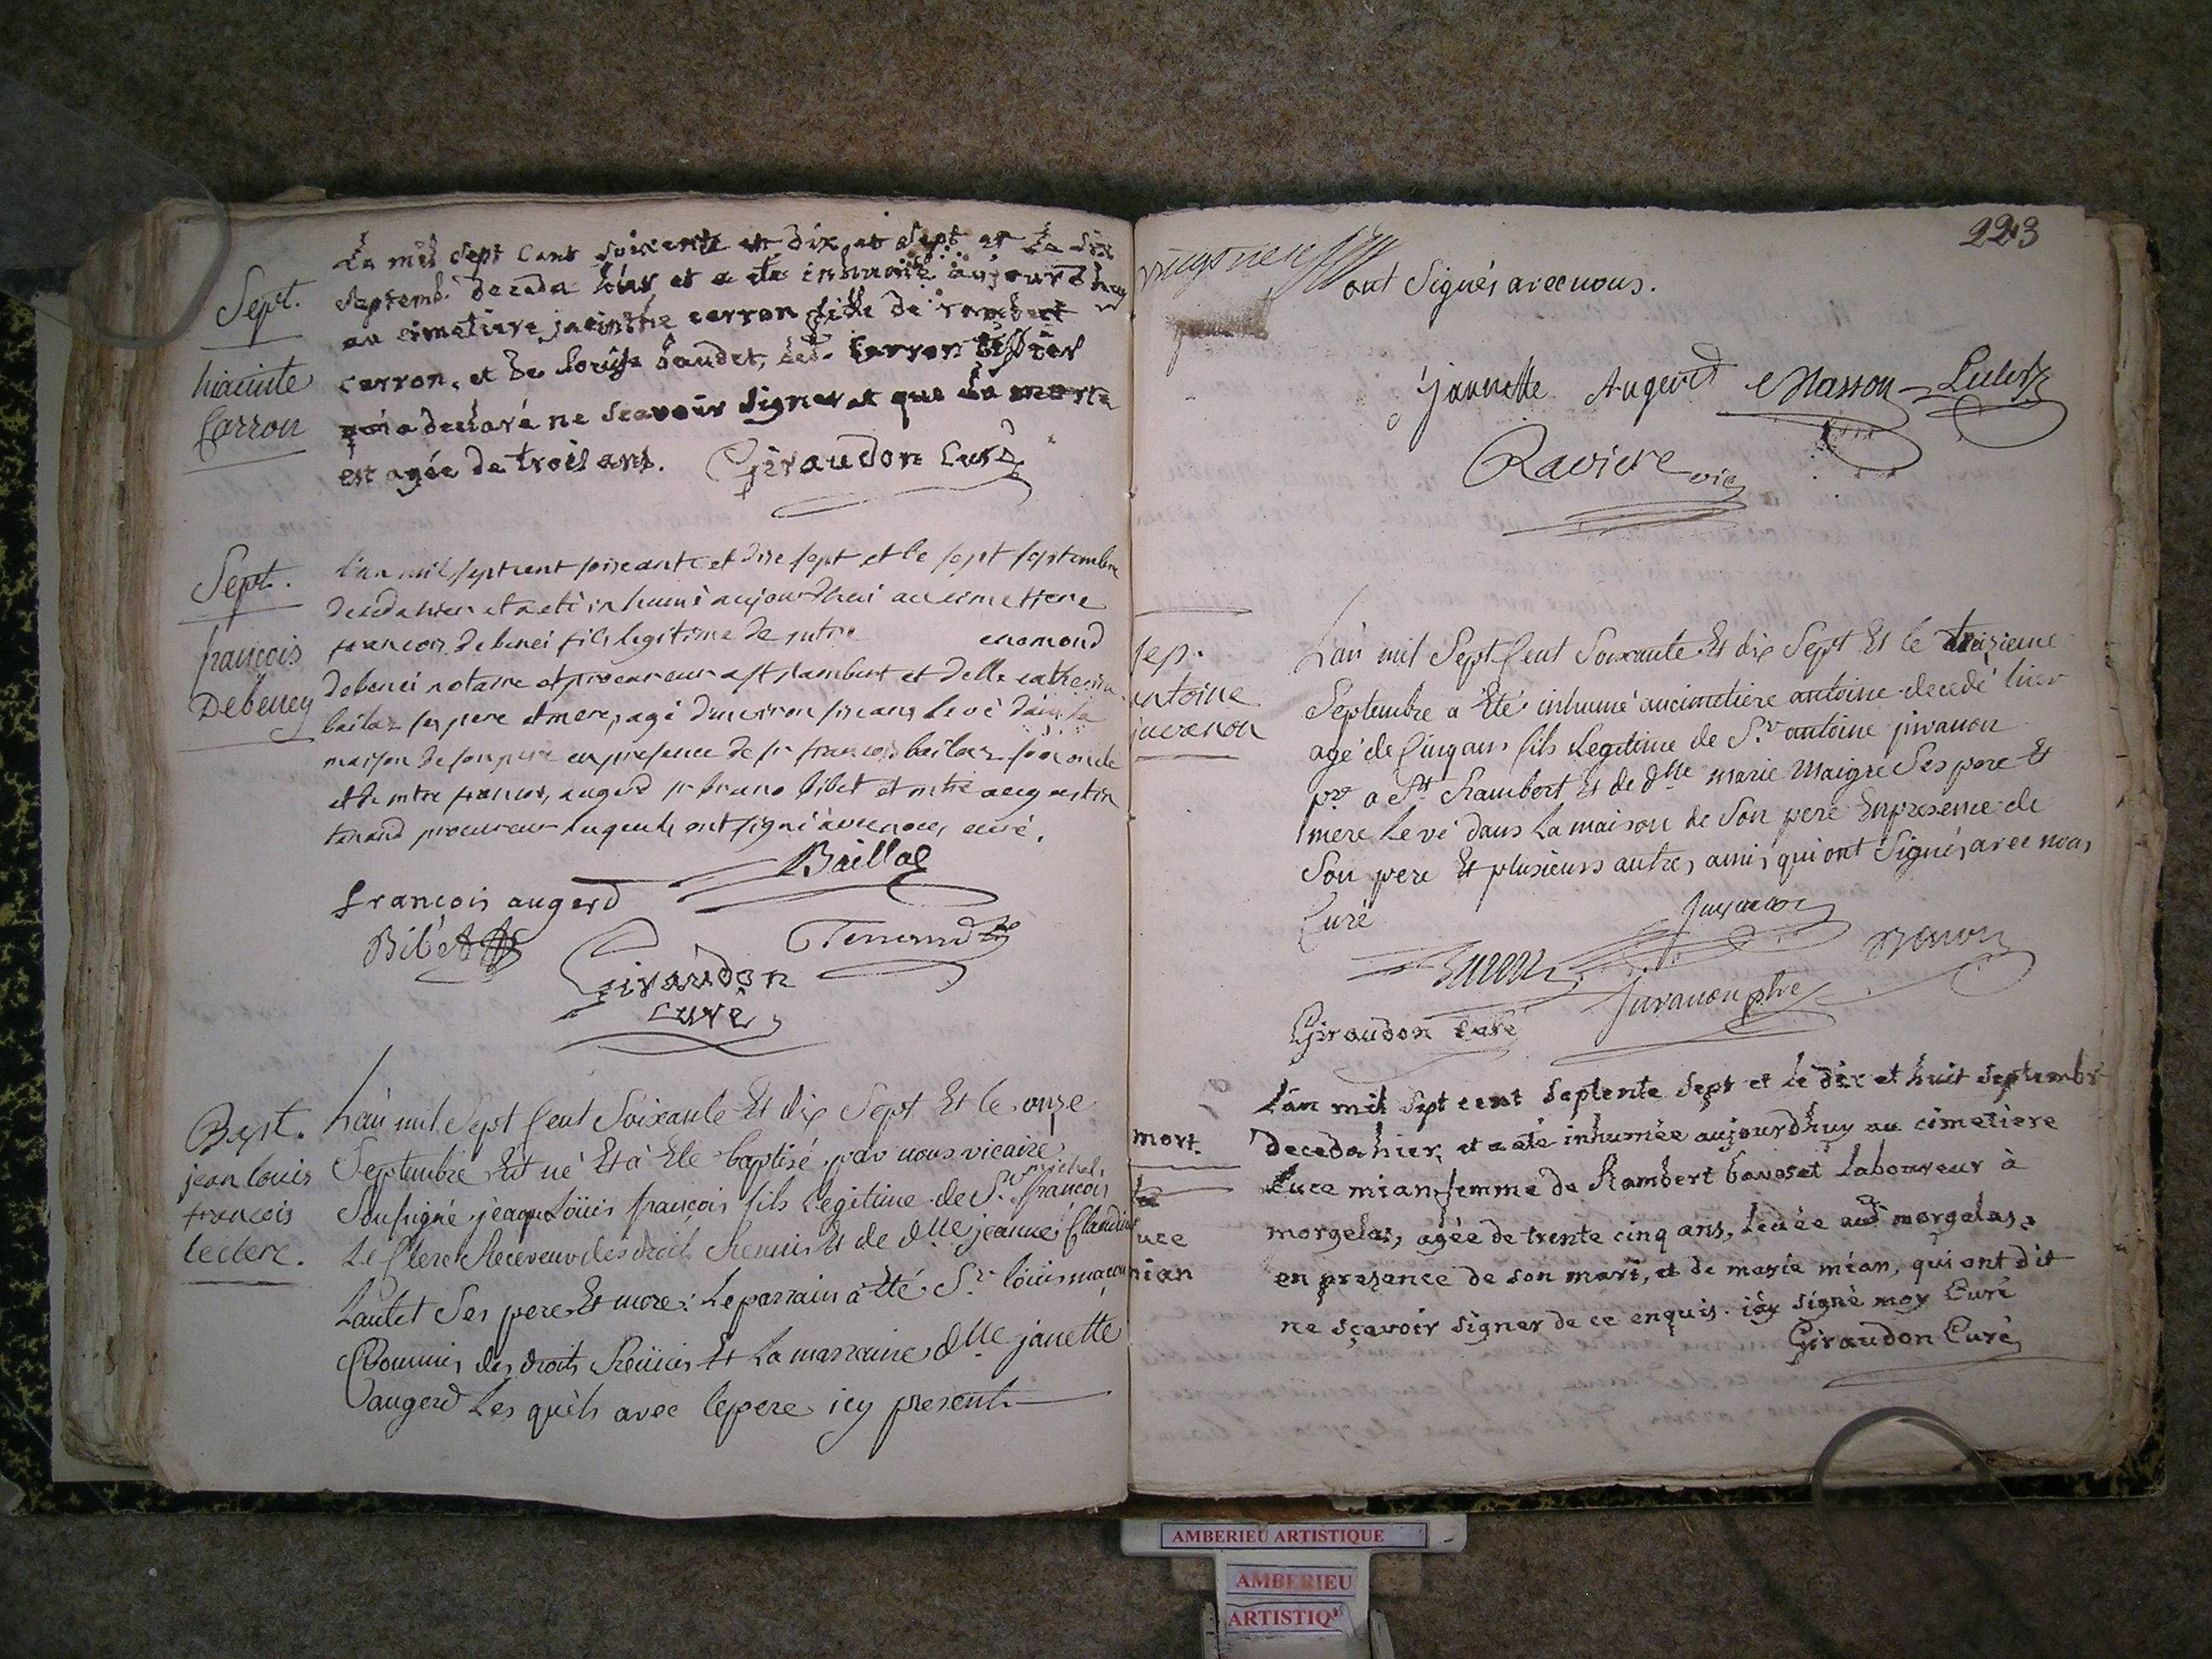 Sept.
hiacinte
Carron
La mil sept cent soixente et dix et sept et le six
septemb. deceda hier et a ete inhumée aujourdhuy
au cimetiere jacinthe carron fille de rambert
carron, et de louise baudet, led. carron
qui a declaré ne scavoir signer et que la morte
est agée de trois ans. Giraudon Curé
Sept.
françois
Debeney
l'an mil sept cent soixante et dix sept et le sept septembre
deceda hier et a eté inhumé aujourdhui au cimetiere
francois debenei fils legitime de mtre enemond
debenei notaire et procureur a st rambert et de dlle catherine
bailar ses pere et mere, agé d'environ six ans levé dans la
maison de son pere en presence de sr francois bailar son oncle
et de mtre francois augerd sr bruno bibet et mtre augustin
tenand procureur lesquels ont signé avec nous curé.
Baillat
françois augerd
Bibet
Tenand
Giraudon
curé
Bapt.
jean louis
francois
leclerc.
L'an mil Sept Cent Soixante Et dix Sept Et le onze
Septembre Est né Et a Eté baptisé par nous vicaire
michel
Soussigné jeaque Loüis françois fils Legitime de Sr. françois
Le Clerc Receveur des droits Reunis Et de dlle jeanne Claudine
Lautet Ses pere Et mere: Le parrain a Eté Sr. loüis maçon
Commis des droits Reünis Et La marraine dlle janette
augerd Les quels avec le pere icy present
223
ont Signés avec nous.
jannette Augerd Masson Leclerc
Raviere vic
sep.
antoine
juvanon
L'an mil Sept Cent Soixante Et dix Sept Et le treizieme
Septembre a Eté inhumé au cimetiere antoine decedé hier
agé de Cinq ans fils Legitime de Sr. antoine juvanon
pr. a St Rambert Et de dlle marie Maigre Ses pere Et
mere Levé dans La maison de Son pere En presence de
Son pere Et plusieurs autres amis qui ont Signés avec nous
Curé
Juvanon
Juvanon pbre
Giraudon curé
mort.
luce
mian
L'an mil sept cent septente sept et le dix et huit septembr
deceda hier, et a eté inhumée aujourdhuy au cimetiere
Luce mian femme de Rambert bavoset laboureur à
morgelas, agée de trente cinq ans, levée aud morgelas,
en presence de son mari, et de marie mian, qui ont dit
ne sçavoir signer de ce enquis. iay signé moy Curé
Giraudon Curé
AMBERIEU ARTISTIQUE
AMBERIEU
ARTISTIQ